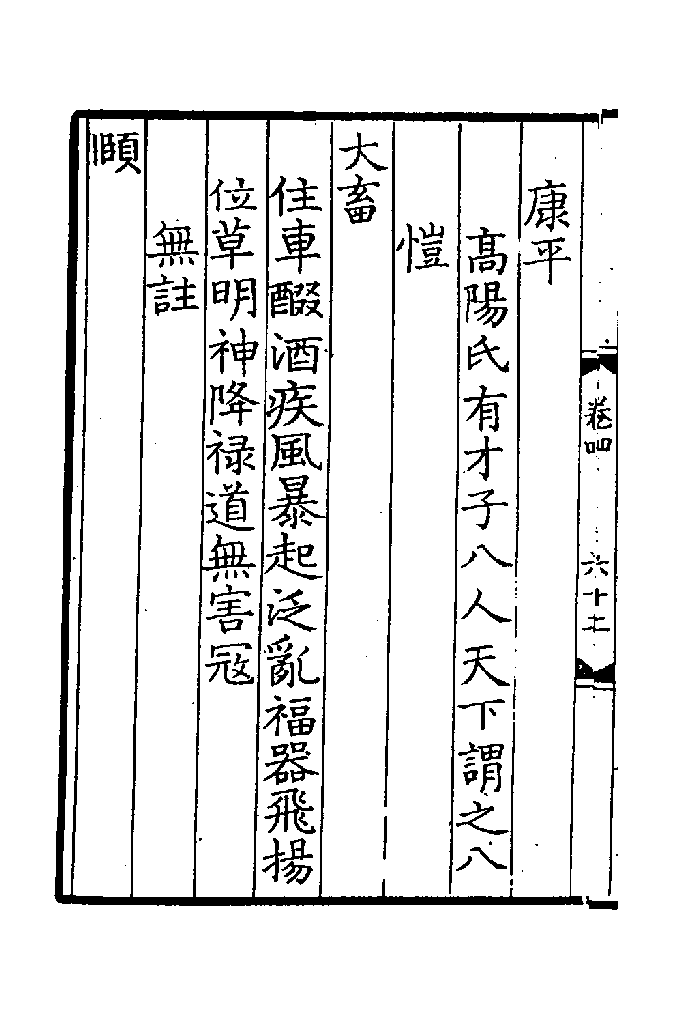 康平
高陽氏有才子八人天下謂之八
愷
大畜
住車醊酒疾風暴起泛亂福器飛揚
位草明神降禄道無害冦
無註
頤
卷四
六十七